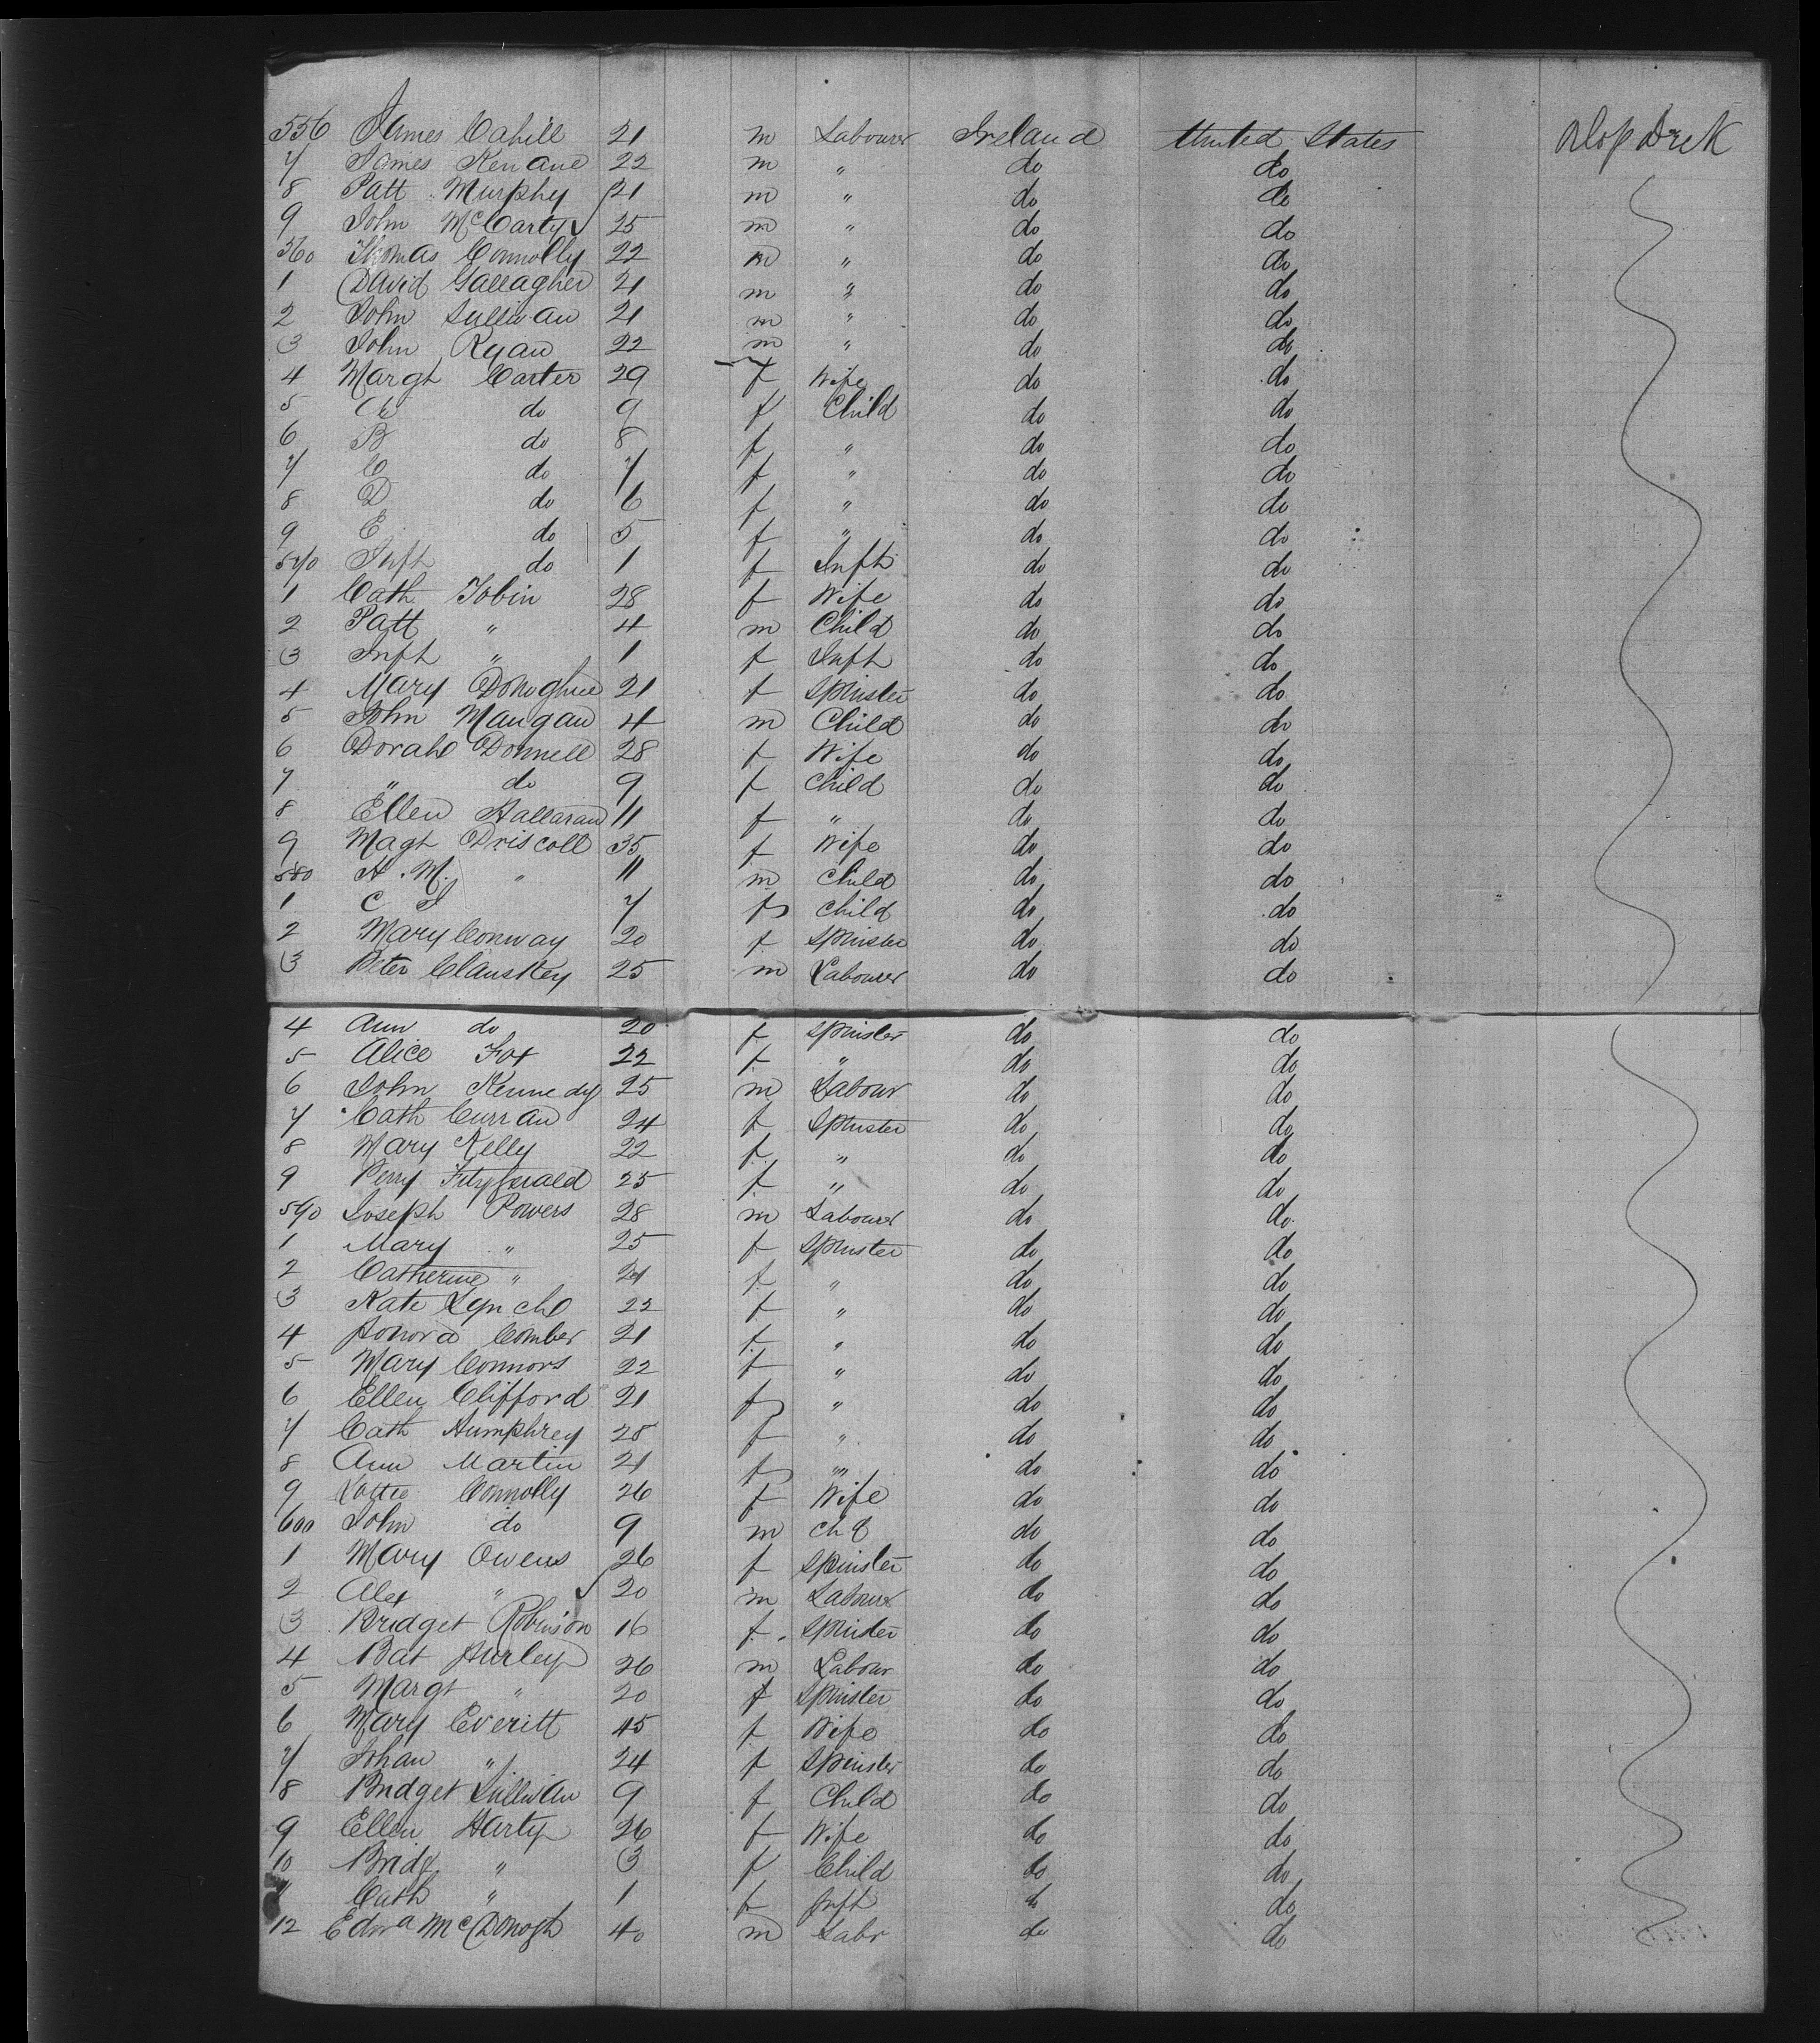 556 James Cahill 21 m Labourer Ireland United States
7 James Kenane 22 m " do do
8 Patt Murphy 21 m " do do
9 John McCarty 25 m " do do
560 Thomas Connolly 22 m " do do
1 David Gallagher 21 m " do do
2 John Sullivan 21 m " do do
3 John Ryan 22 m " do do
4 Margt Carter 29 f Wife do do
5 A do 9 f Child do do
6 B do 8 f " do do
7 C do 7 f " do do
8 D do 6 f " do do
9 E do 5 f " do do
570 Inft do 1 f Inft do do
1 Cath Tobin 28 f Wife do do
2 Patt " 4 m Child do do
3 Inft " 1 f Inft do do
4 Mary Donoghue 21 f Spinster do do
5 John Mangan 4 m Child do do
6 Dorah Donnell 28 f Wife do do
7 " do 9 f Child do do
8 Ellen Hallaran 11 f " do do
9 Magt Driscoll 35 f Wife do do
580 A. M. " 11 m Child do do
1 C J 7 f Child do do
2 Mary Conway 20 f Spinster do do
3 Peter Clauskey 25 m Labourer do do
4 Ann do 20 f Spinster do do
5 Alice Fox 22 f " do do
6 John Kennedy 25 m Labour do do
7 Cath Curran 24 f Spinster do do
8 Mary Kelly 22 f " do do
9 Perry Fitzgerald 25 f " do do
590 Joseph Powers 28 m Labourer do do
1 Mary " 25 f Spinster do do
2 Catherine " 21 f " do do
3 Kate Lynch 22 f " do do
4 Honora Comber 21 f " do do
5 Mary Connors 22 f " do do
6 Ellen Clifford 21 f " do do
7 Cath Humphrey 28 f " do do
8 Ann Martin 21 f " do do
9 Connolly 26 f Wife do do
600 John do 9 m chd do do
1 Mary Owens 26 f Spinster do do
2 Alex " 20 m Labourer do do
3 Bridget Robinson 16 f Spinster do do
4 Bat Hurley 26 m Labour do do
5 Margt " 20 f Spinster do do
6 Mary Everitt 45 f Wife do do
7 Johan " 24 f Spinster do do
8 Bridget Sullivan 9 f Child do do
9 Ellen Harty 26 f Wife do do
10 Bridg " 3 f Child do do
Cath " 1 f Inft do do
12 Edwd McDonogh 40 m Labr do do